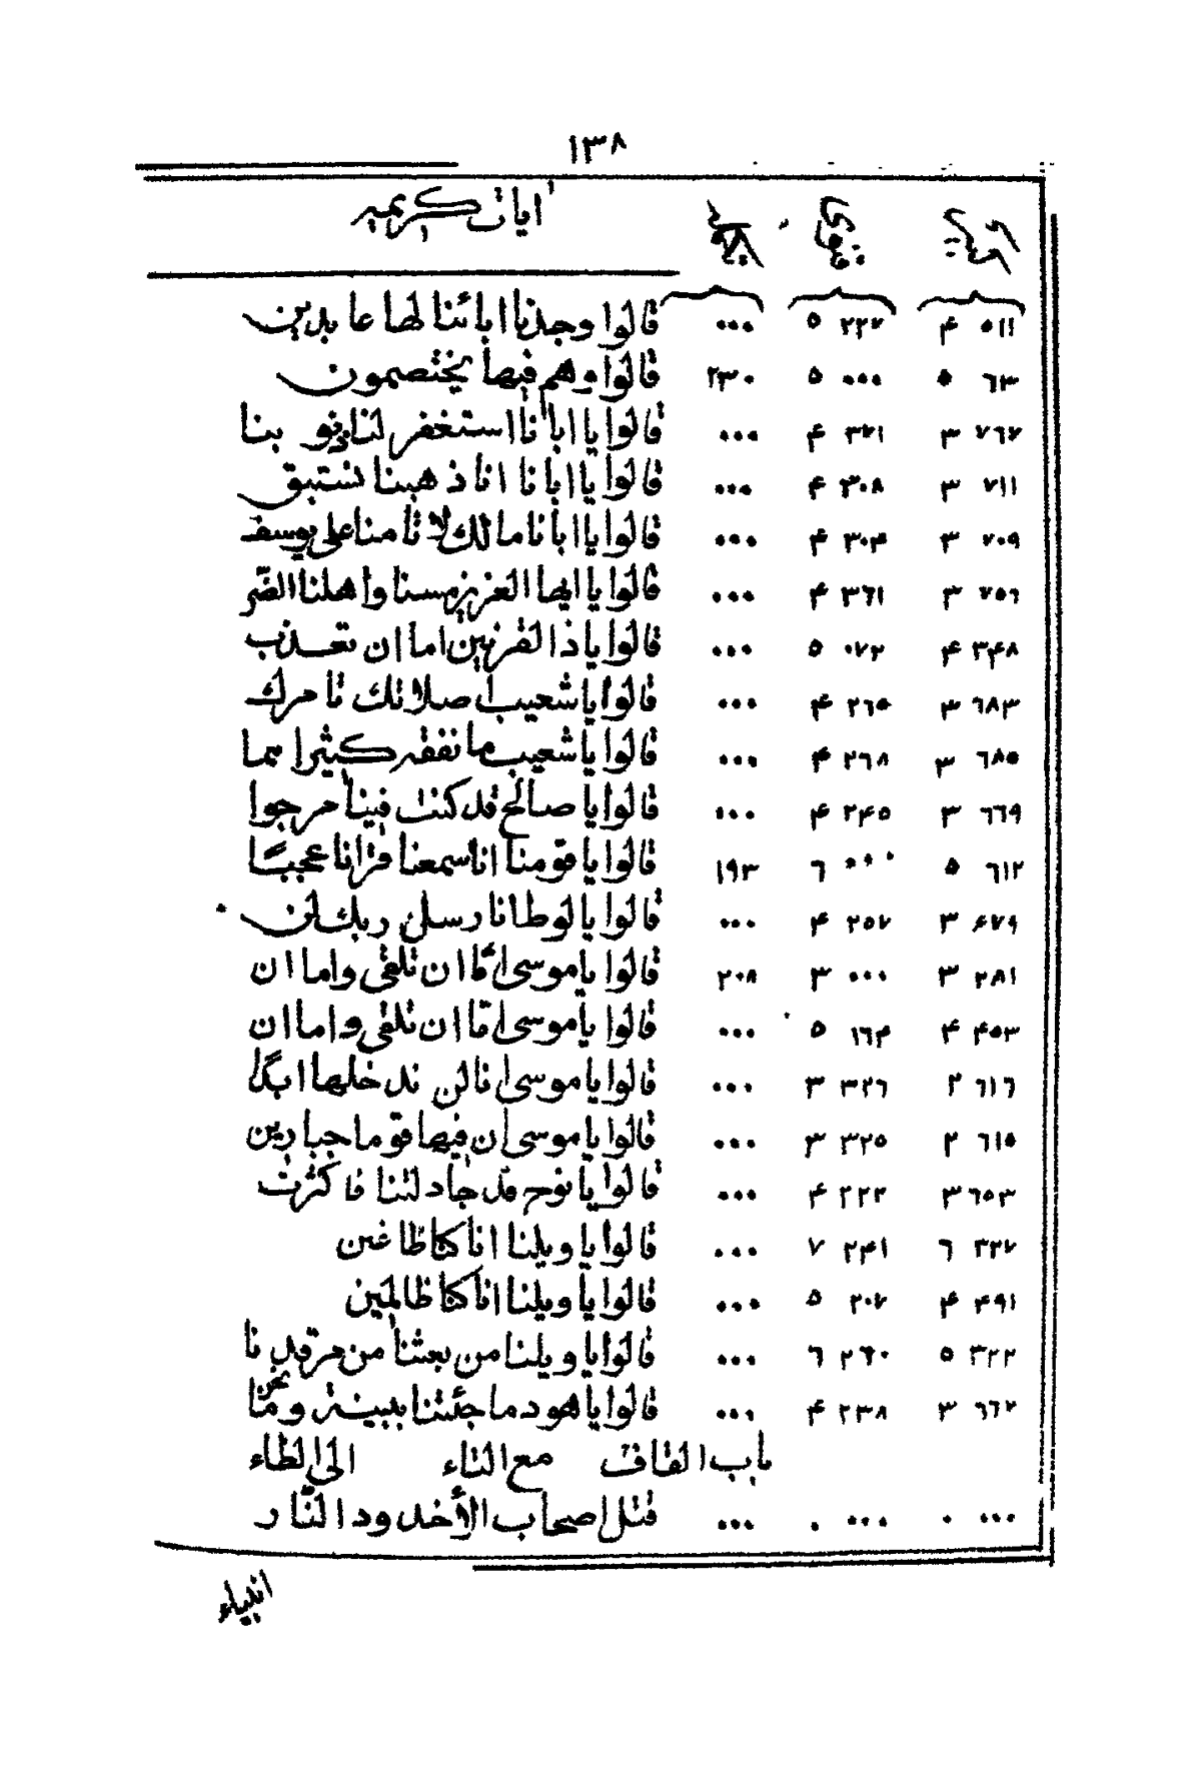 ١٣٨
ايات كريمه
٥١١ ۴ ٢٢٧ ٥ ٠٠٠ قالوا وجدنا ابائنا لها عابدين
٦٣ ٥ ٠٠٠ ٥ ٢٣٠ قالوا وهم فيها يختصمون
٧٦٧ ٣ ٣٧١ ۴ ٠٠٠ قالوا يا ابانا استغفر لنا ذنوبنا
٧١١ ٣ ٣٠٨ ۴ ٠٠٠ قالوا يا ابانا انا ذهبنا نستبق
٧٠٩ ٣ ٣٠۴ ۴ ٠٠٠ قالوا يا ابانا مالك لا تامنا على يوسف
٧٥٦ ٣ ٣٦١ ۴ ٠٠٠ قالوا يا ايها العزيز مسنا واهلنا الضّر
٣۴٨ ۴ ٠٧٢ ٥ ٠٠٠ قالوا يا ذا القرنين اما ان تعذب
٦٨٣ ٣ ٢٦٥ ۴ ٠٠٠ قالوا يا شعيب ا صلاتك تامرك
٦٨٥ ٣ ٢٦٨ ۴ ٠٠٠ قالوا يا شعيب ما نفقه كثيرا مما
٦٦٩ ٣ ٢۴٥ ۴ ٠٠٠ قالوا يا صالح قد كنت فينا مرجوا
٦١٢ ٥ ٠٠٠ ٦ ١٩٣ قالوا يا قومنا انا سمعنا قرانا عجبًا
۶٧٩ ٣ ٢٥٧ ۴ ٠٠٠ قالوا يا لوط انا رسل ربك لن
٢٨١ ٣ ٠٠٠ ٣ ٢٠٨ قالوا يا موسى امّا ان تلقى واما ان
۴٥٣ ۴ ١٦۴ ٥ ٠٠٠ قالوا يا موسى امّا ان تلقى واما ان
٦١٦ ٢ ٣٢٦ ٣ ٠٠٠ قالوا يا موسى انا لن ندخلها ابدًا
٦١٥ ٢ ٣٢٥ ٣ ٠٠٠ قالوا يا موسى ان فيها قوما جبارين
٦٥٣ ٣ ٢٢٢ ۴ ٠٠٠ قالوا يا نوح قد جادلتنا فاكثرت
٣٢٧ ٦ ٢۴١ ٧ ٠٠٠ قالوا يا ويلنا انا كنا طاغين
۴٩١ ۴ ٢٠٧ ٥ ٠٠٠ قالوا يا ويلنا انا كنا ظالمين
٣٢٢ ٥ ٢٦٠ ٦ ٠٠٠ قالوا يا ويلنا من بعثنا من مرقدنا
٦٦٢ ٣ ٢٣٨ ۴ ٠٠٠ قالوا يا هود ما جئتنا ببينة وما نحن
باب القاف مع التاء الى الطاء
٠٠٠ ٠ ٠٠٠ ٠ ٠٠٠ قتل اصحاب الأخدود النّار
انبياء